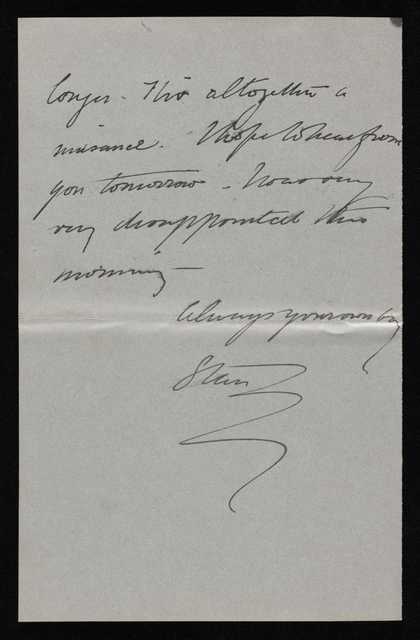 longer. It is altogether a
nuisance. I hope to hear from
you tomorrow - I was very
very disappointed this
morning -
Always your own boy
Stan